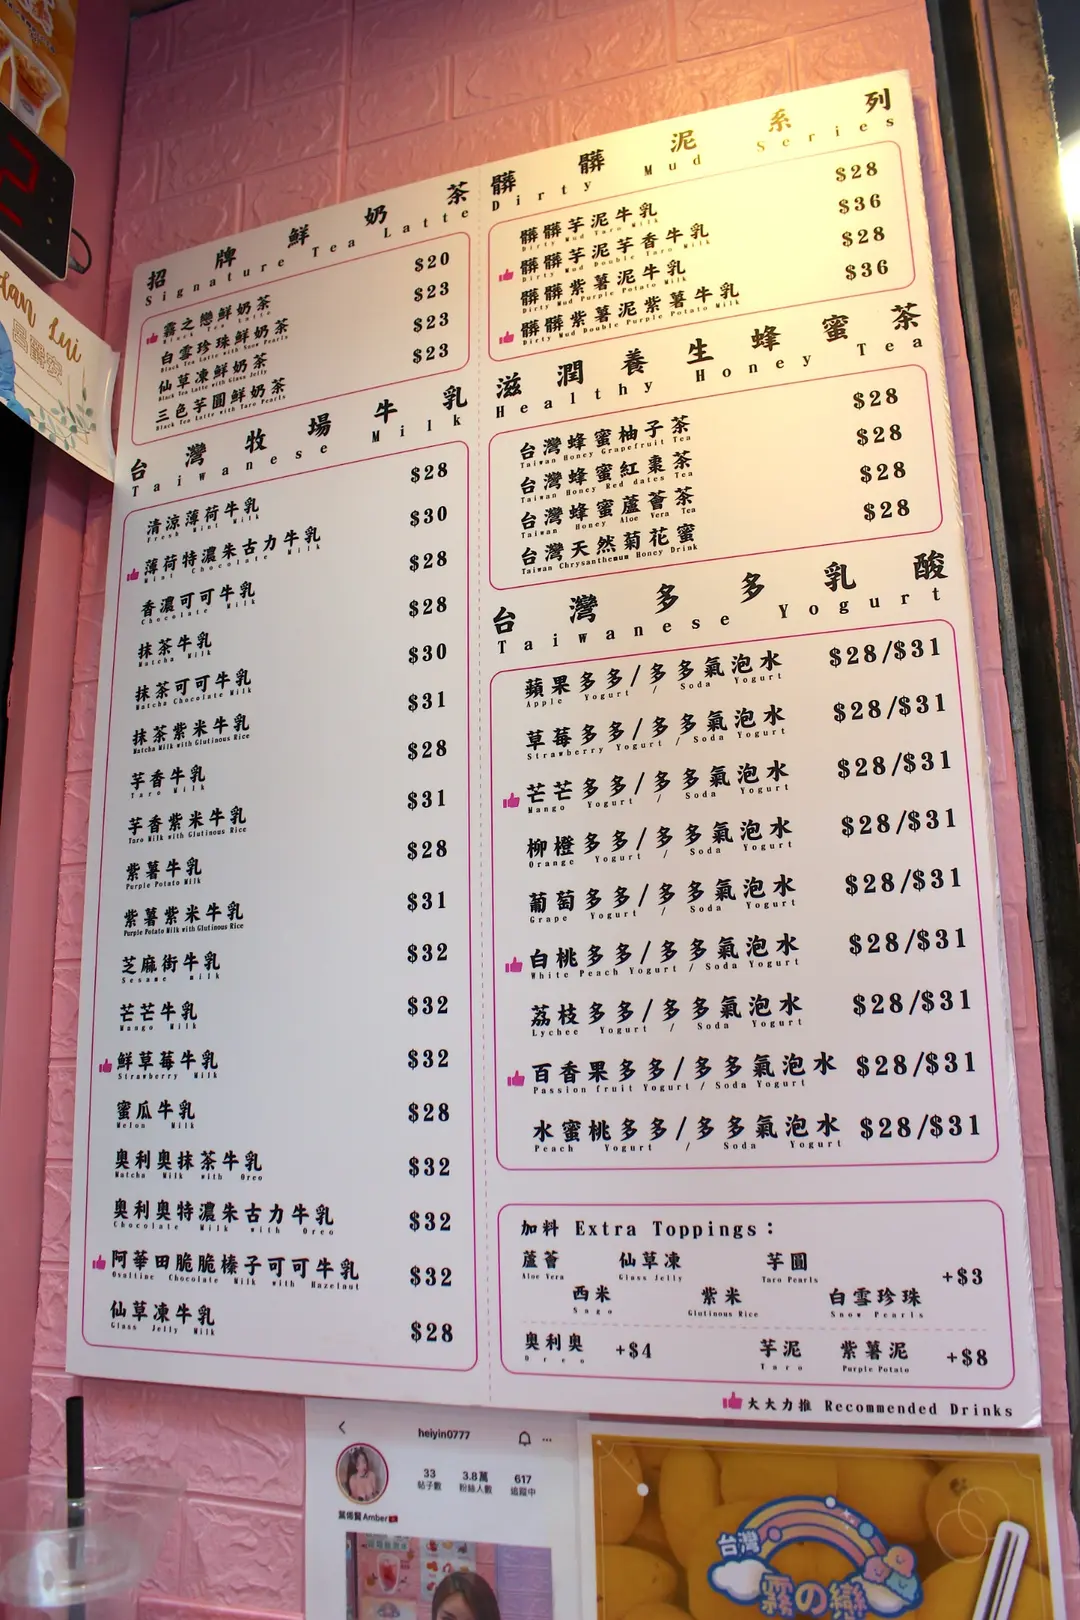 招牌鮮奶茶
Signature Tea Latte
霧之戀鮮奶茶 $20
Black Tea Latte
白雪珍珠鮮奶茶 $23
Black Tea Latte with Snow Pearls
仙草凍鮮奶茶 $23
Black Tea Latte with Glass Jelly
三色芋圓鮮奶茶 $23
Black Tea Latte with Taro Pearls
台灣牧場牛乳
Taiwanese Milk
清涼薄荷牛乳 $28
Fresh Mint Milk
薄荷特濃朱古力牛乳 $30
Mint Chocolate Milk
香濃可可牛乳 $28
Chocolate Milk
抹茶牛乳 $28
Matcha Milk
抹茶可可牛乳 $30
Matcha Chocolate Milk
抹茶紫米牛乳 $31
Matcha Milk with Glutinous Rice
芋香牛乳 $28
Taro Milk
芋香紫米牛乳 $31
Taro Milk with Glutinous Rice
紫薯牛乳 $28
Purple Potato Milk
紫薯紫米牛乳 $31
Purple Potato Milk with Glutinous Rice
芝麻街牛乳 $32
Sesame milk
芒芒牛乳 $32
Mango Milk
鮮草莓牛乳 $32
Strawberry Milk
蜜瓜牛乳 $28
Melon Milk
奧利奧抹茶牛乳 $32
Matcha Milk with Oreo
奧利奧特濃朱古力牛乳 $32
Chocolate Milk with Oreo
阿華田脆脆榛子可可牛乳 $32
Ovaltine Chocolate Milk with Hazelnut
仙草凍牛乳 $28
Glass Jelly Milk
髒髒泥系列
Dirty Mud Series
髒髒芋泥牛乳 $28
Dirty Mud Taro Milk
髒髒芋泥芋香牛乳 $36
Dirty Mud Double Taro Milk
髒髒紫薯泥牛乳 $28
Dirty Mud Purple Potato Milk
髒髒紫薯泥紫薯牛乳 $36
Dirty Mud Double Purple Potato Milk
滋潤養生蜂蜜茶
Healthy Honey Tea
台灣蜂蜜柚子茶 $28
Taiwan Honey Grapefruit Tea
台灣蜂蜜紅棗茶 $28
Taiwan Honey Red dates Tea
台灣蜂蜜蘆薈茶 $28
Taiwan Honey Aloe Vera Tea
台灣天然菊花蜜 $28
Taiwan Chrysanthemum Honey Drink
台灣多多乳酸
Taiwanese Yogurt
蘋果多多/多多氣泡水 $28/$31
Apple Yogurt / Soda Yogurt
草莓多多/多多氣泡水 $28/$31
Strawberry Yogurt / Soda Yogurt
芒芒多多/多多氣泡水 $28/$31
Mango Yogurt / Soda Yogurt
柳橙多多/多多氣泡水 $28/$31
Orange Yogurt / Soda Yogurt
葡萄多多/多多氣泡水 $28/$31
Grape Yogurt / Soda Yogurt
白桃多多/多多氣泡水 $28/$31
White Peach Yogurt / Soda Yogurt
荔枝多多/多多氣泡水 $28/$31
Lychee Yogurt / Soda Yogurt
百香果多多/多多氣泡水 $28/$31
Passion fruit Yogurt / Soda Yogurt
水蜜桃多多/多多氣泡水 $28/$31
Peach Yogurt / Soda Yogurt
加料 Extra Toppings：
蘆薈 仙草凍 芋圓
Aloe Vera Glass Jelly Taro Pearls
+$3
西米 紫米 白雪珍珠
Sago Glutinous Rice Snow Pearls
奧利奧 +$4 芋泥 紫薯泥 +$8
Oreo Taro Purple Potato
大大力推 Recommended Drinks
heiyin0777
33 3.8萬 617
帖子數 粉絲人數 追蹤中
Amber
台灣
霧の戀
Lui